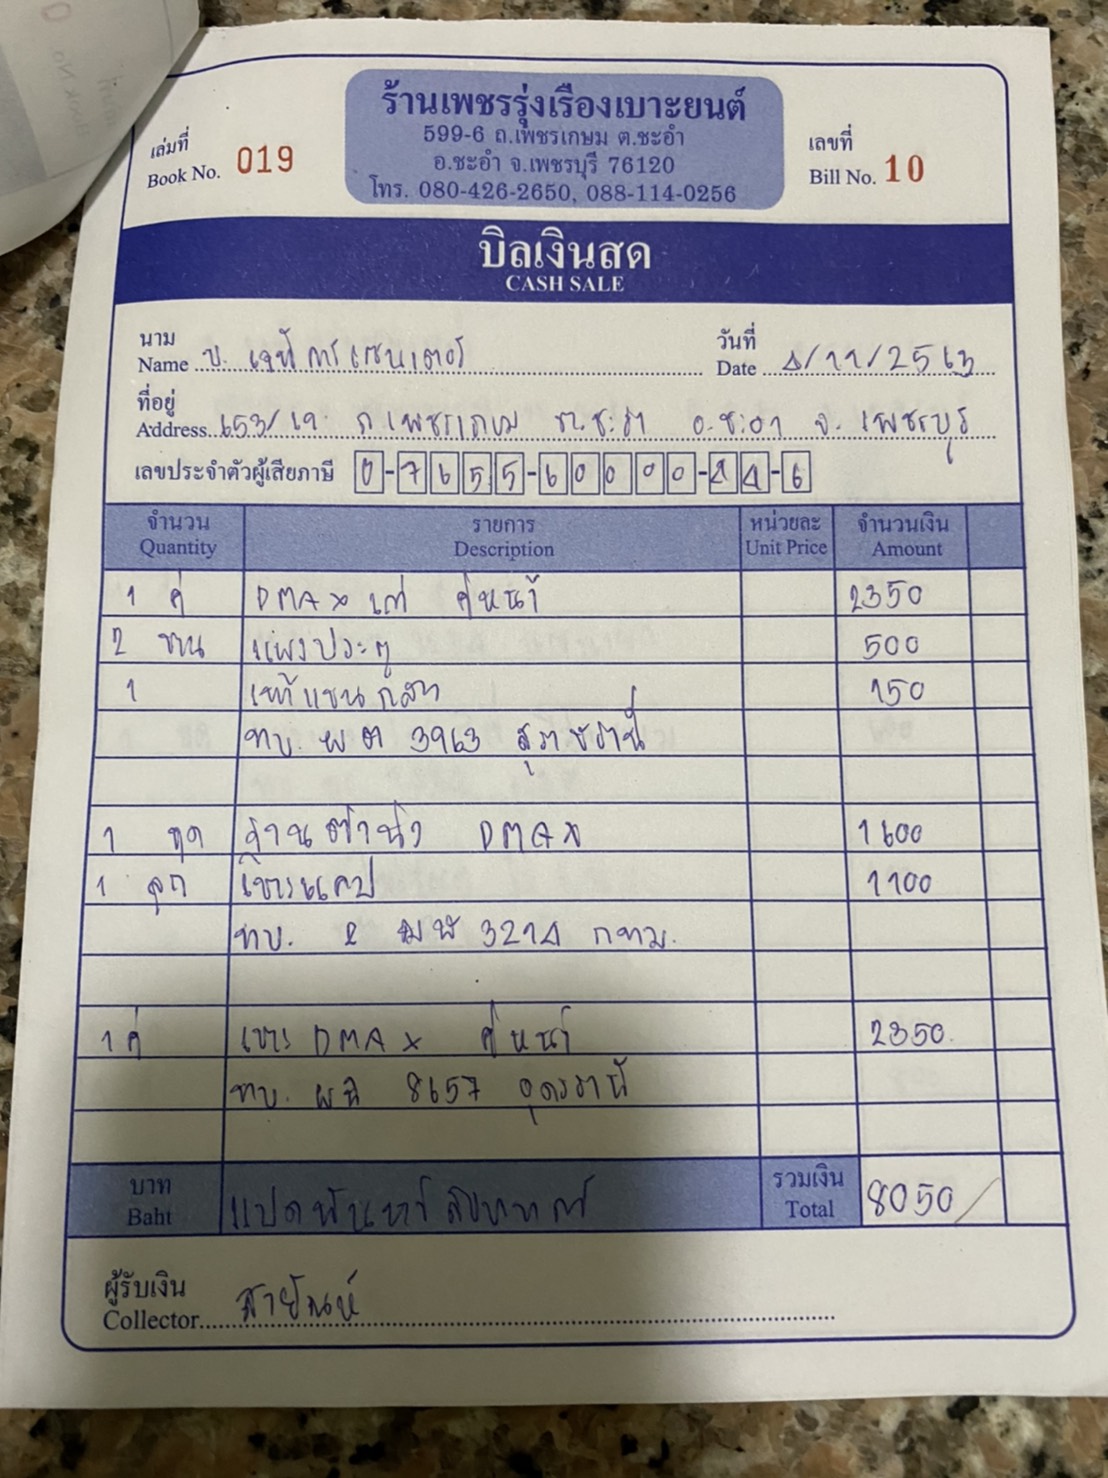 ร้านเพชรรุ่งเรืองเบาะยนต์
599-6 ถ.เพชรเกษม ต.ชะอำ
อ.ชะอำ จ.เพชรบุรี 76120
โทร. 080-426-2650, 088-114-0256
เล่มที่
Book No. 019
เลขที่
Bill No. 10
บิลเงินสด
CASH SALE
นาม
Name บ. เจพีการเซนเตอร์
วันที่
Date 4/11/2563
ที่อยู่
Address 653/19 ถ.เพชรเกษม ต.ชะอำ อ.ชะอำ จ.เพชรบุรี
เลขประจำตัวผู้เสียภาษี 0-7655-60000-24-6
จำนวน รายการ หน่วยละ จำนวนเงิน
Quantity Description Unit Price Amount
1 คู่ DMAX เก่า คู่หน้า 2350
2 บาน แผงประตู 500
1 เท้าแขนกลาง 150
ทบ. ผต 3963 สุราษธานี
1 ชุด 1600
DMAX
1 ลูก เบาะแคป 1100
ทบ. 2 ฒฬ 3214 กทม.
1 คู่ เบาะ DMAX คู่หน้า 2350
ทบ. 8657 อุดรธานี
บาท แปดพันห้าสิบบาท รวมเงิน 8050/
Baht Total
ผู้รับเงิน
Collector สายัณห์